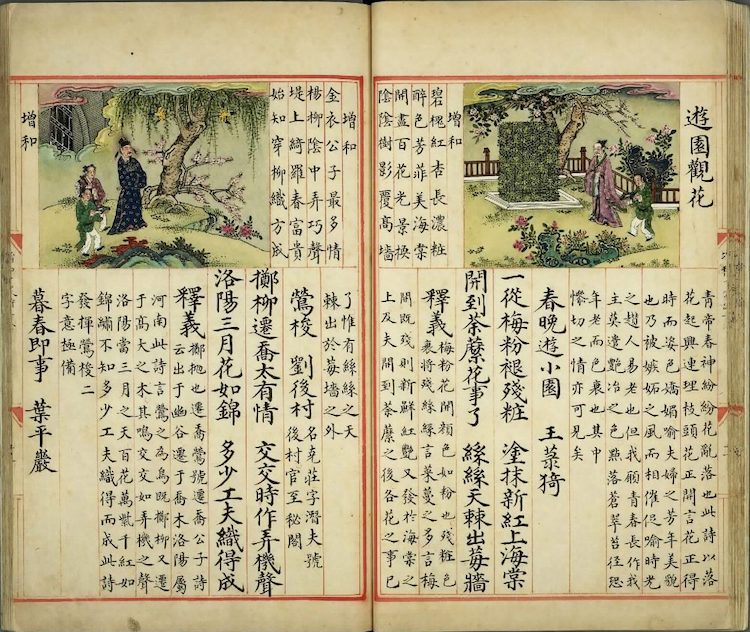 遊園觀花
增和
碧槐紅杏長濃粧
醉色芳菲美海棠
開盡百花光景換
陰陰樹影覆高墻
青帝春神紛紛花亂落也此詩以落
花起興連理枝頭花正開言花正得
時而姿色嬌媚喻夫婦之芳年美貌
也乃被嫉妬之風而相催促喻時光
之趲人易老也但我願青春長作我
主莫遣艷冶之色點落蒼翠苔徑恐
年老而色衰也其中
慘切之情亦可見矣
春晚遊小園 王菉猗
一從梅粉褪殘粧 塗抹新紅上海棠
開到荼蘼花事了 絲絲天棘出莓牆
釋義 梅粉花開顏色如粉也殘粧色
衰將殘絲絲言菜蔓之多言梅
開既殘則新鮮紅艷又發於海棠之
上及夫開到荼蘼之後各花之事已
增和
金衣公子最多情
楊柳陰中弄巧聲
堤上綺羅春富貴
始知穿柳織方成
增和
了惟有絲絲之天
棘出於莓墻之外
鶯梭 劉後村 名克莊字潛夫號
後村官至秘閣
擲柳遷喬太有情 交交時作弄機聲
洛陽三月花如錦 多少工夫織得成
釋義 擲抛也遷喬鶯號遷喬公子詩
云出于幽谷遷于喬木洛陽屬
河南此詩言鶯之為鳥既擲柳又遷
于高大之木其鳴交交如弄機之聲
洛陽當三月之天百花萬紫千紅如
錦繡不知多少工夫織得而成此詩
發揮鶯梭二
字意極備
暮春即事 葉平巖